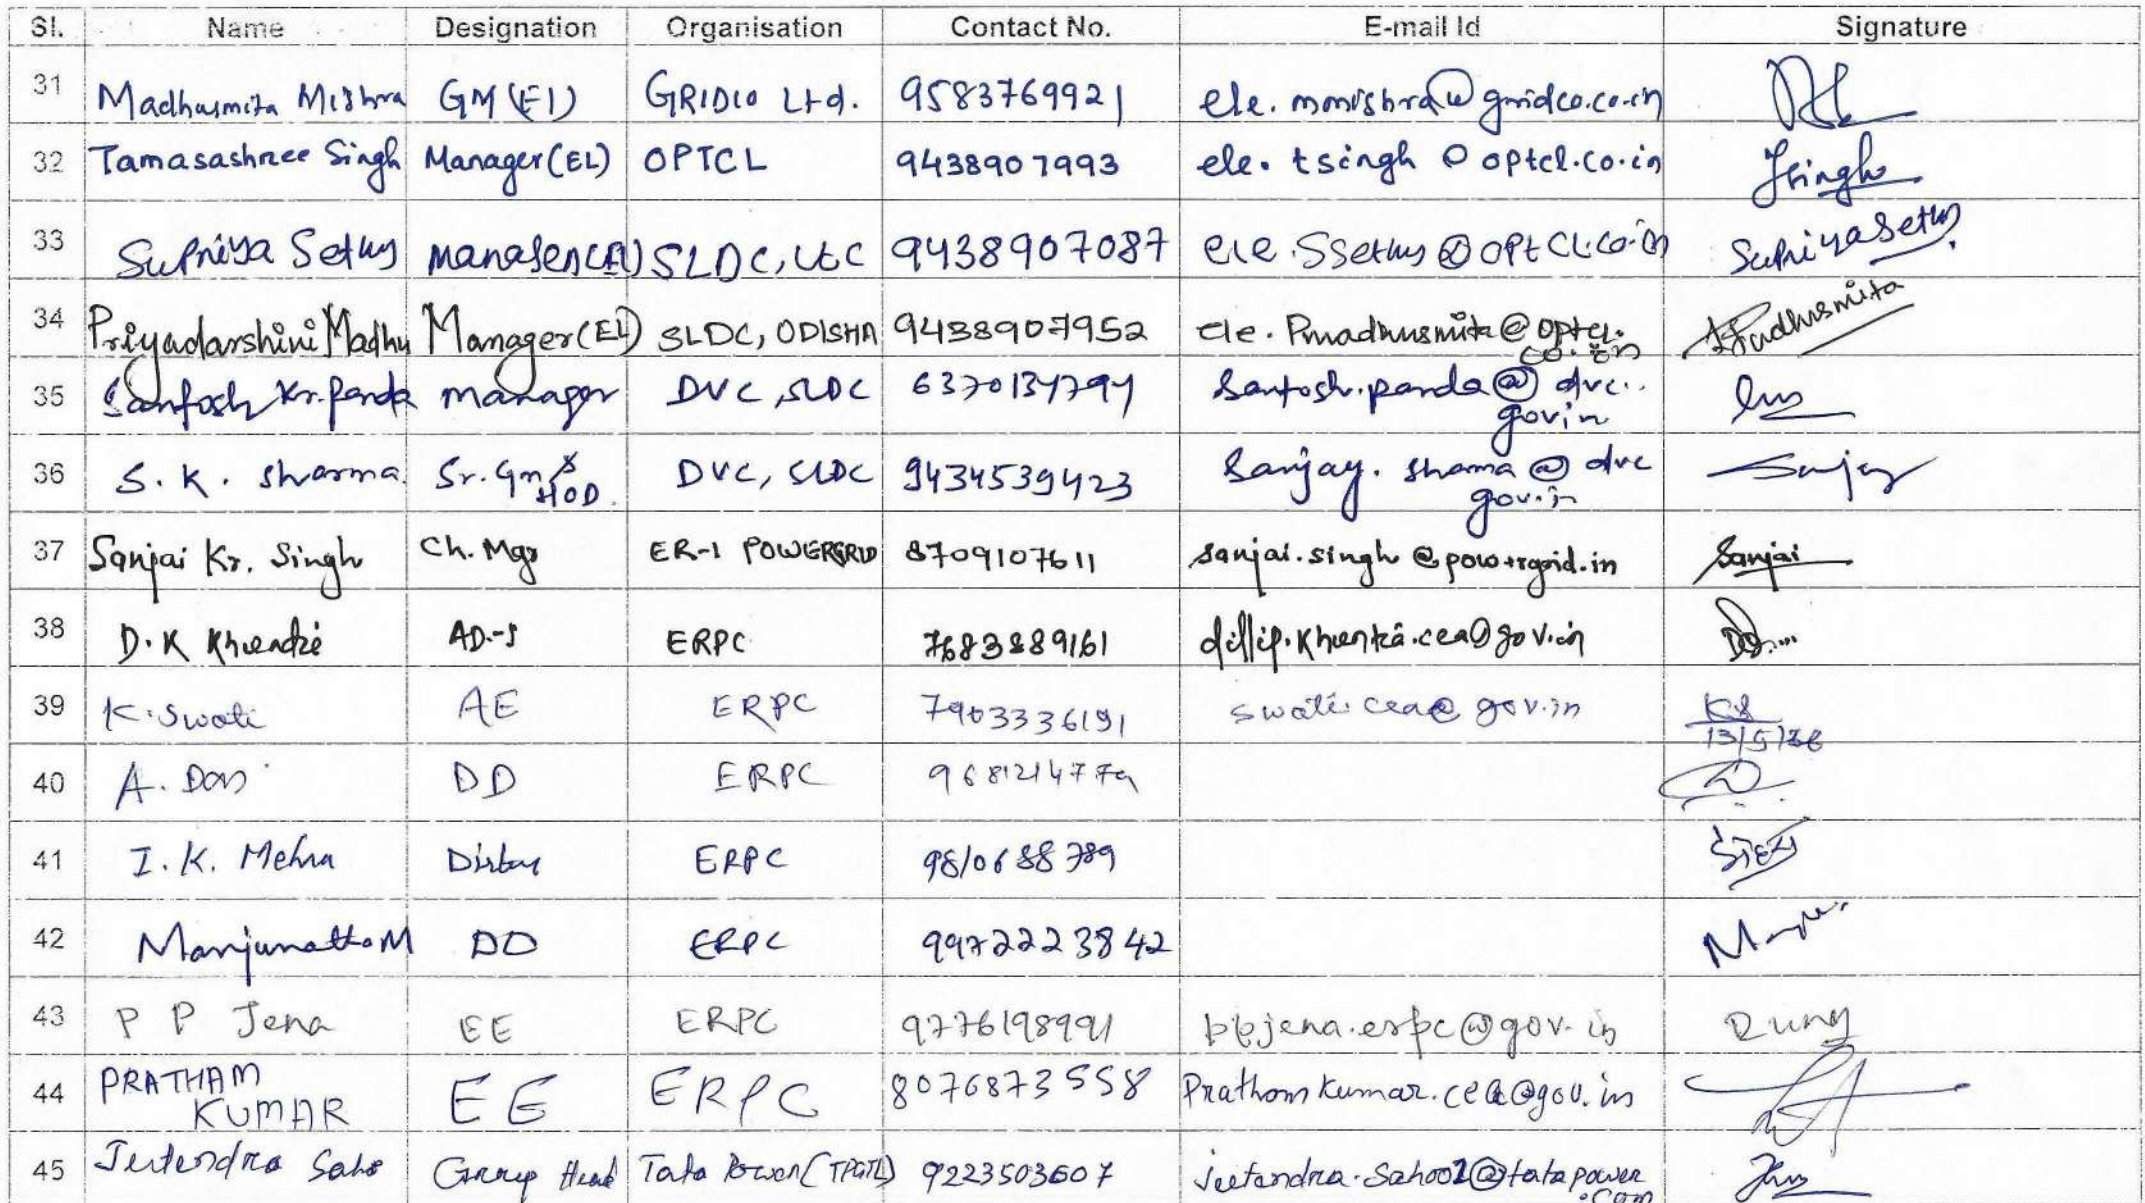 Sl. Name Designation Organisation Contact No. E-mail Id Signature
31 Madhusmita Mishra GM (El) GRIDCO Ltd. 9583769921 ele.mmishra@gridco.co.in
32 Tamasashree Singh Manager(EL) OPTCL 9438907993 ele.tsingh@optcl.co.in TSingh
33 Supriya Sethy Manager(El) SLDC, 9438907087 ele.ssethy@optcl.co.in Supriya Sethy
34 Priyadarshini Madhu Manager(El) SLDC, ODISHA 9438907952 ele.Pmadhusmita@optcl.
co.in
35 Santosh Kr. Panda manager DVC, SLDC 6370134794 Santosh.panda@dvc.
gov.in
36 S. K. Sharma Sr. Gm &
HOD DVC, SLDC 9434539423 Sanjay.sharma@dvc
gov.in Sanjay
37 Sanjai Kr. Singh Ch. Mgr ER-1 POWERGRID 8709107611 sanjai.singh@powergrid.in Sanjai
38 D.K ERPC
39 K. Swati AE ERPC 7903336191 swati.cea@gov.in KS
13/5/26
40 A. Das DD ERPC
41 I. K. Mehra ERPC 9810688789
42 Manjunatha M DD ERPC 99722223842
43 P P Jena EE ERPC 9776198991 ppjena.erpc@gov.in
44 PRATHAM
KUMAR EE ERPC 8076873558 Prathamkumar.cea@gov.in
45 Jeetendra Group Head Tata Power (TPGTL) 9223503607 jeetendra.sahoo1@tatapower
.com